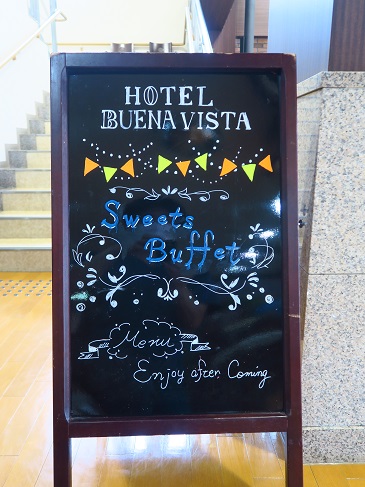 HOTEL
BUENA VISTA
Sweets
Buffet
Menu
Enjoy after Coming